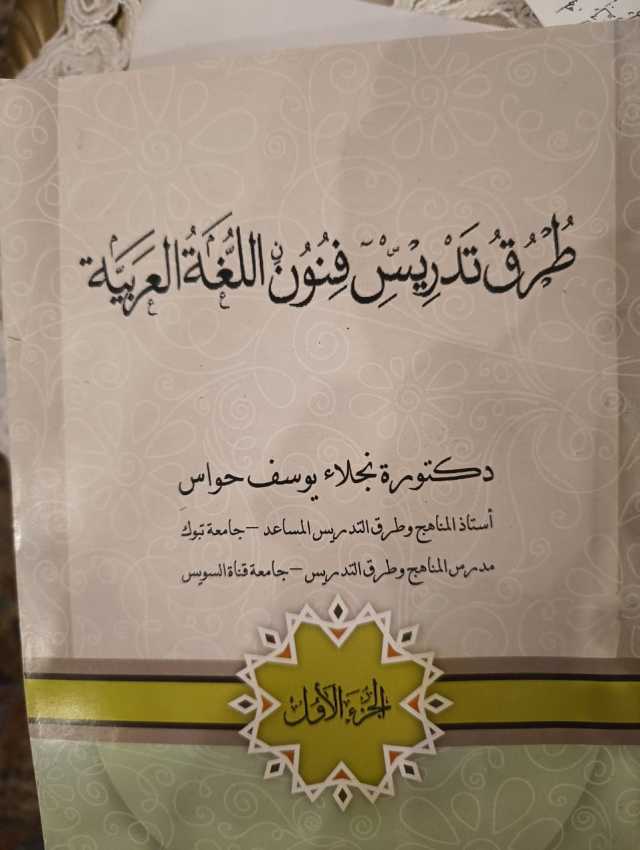 طُرُقُ تَدْرِيسِ فُنُونِ اللُّغَةُ العَرَبِيَّة
دكتورة نجلاء يوسف حواس
أستاذ المناهج وطرق التدريس المساعد – جامعة تبوك
مدرس المناهج وطرق التدريس – جامعة قناة السويس
الجزء الأول